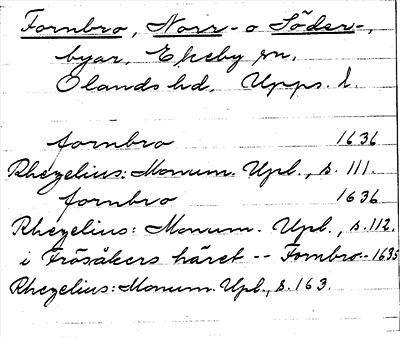 Fornbro, Norr- o Söder-,
byar, Ekeby sn.
Olands hd. Upps. l.
fornbro 1636
Rhezelius: Monum. Upl., s. 111.
fornbro 1636
Rhezelius: Monum. Upl., s. 112.
i Frösåkers häret -- Fornbro -- 1635
Rhezelius: Monum. Upl., s. 163.